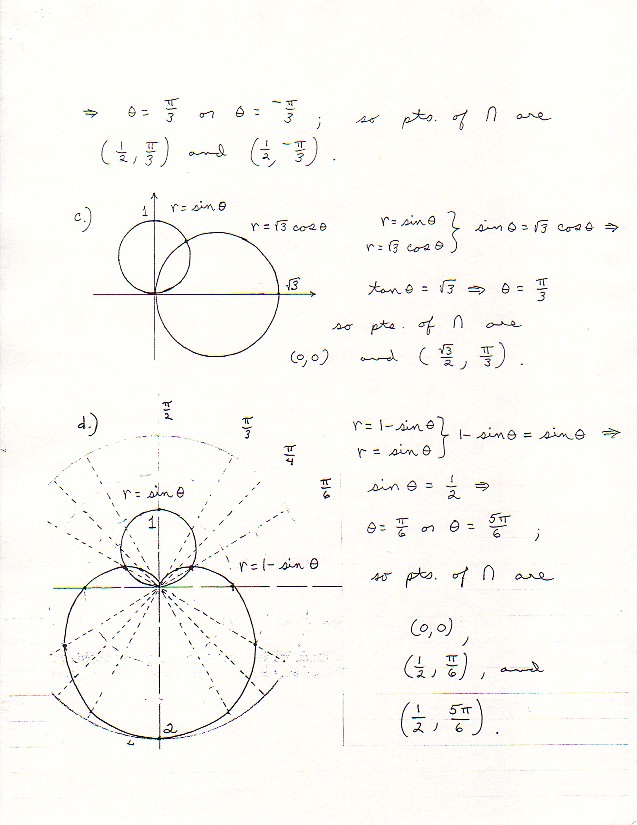 ⇒ θ = π/3 or θ = -π/3 ; so pts. of ∩ are
(1/2, π/3) and (1/2, -π/3).
c.)
1
r = sin θ
r = √3 cos θ
√3
r = sin θ
r = √3 cos θ } sin θ = √3 cos θ ⇒
tan θ = √3 ⇒ θ = π/3
so pts. of ∩ are
(0,0) and (√3/2, π/3).
d.)
π/2
π/3
π/4
π/6
r = sin θ
1
r = 1 - sin θ
2
r = 1 - sin θ
r = sin θ } 1 - sin θ = sin θ ⇒
sin θ = 1/2 ⇒
θ = π/6 or θ = 5π/6 ;
so pts. of ∩ are
(0,0),
(1/2, π/6), and
(1/2, 5π/6).